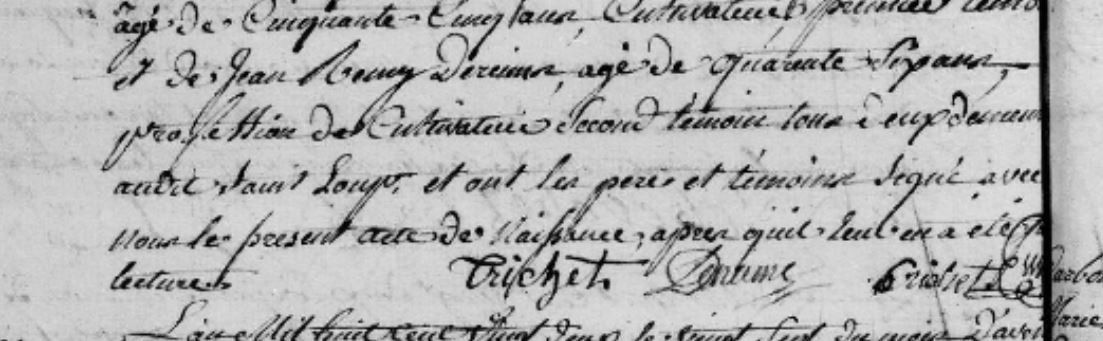 âgé de Cinquante Cinq ans Cultivateur premier témo
et de Jean Remy Dereims, agé de quarante Six ans,
profession de Cultivateur Second témoin tous deux demeur
audit Saint Loup, et ont les pere et témoins signé avec
nous le present acte de Naissance, apres quil leur en a été
lecture Trichet Trichet
L'an Mil huit cent Vingt deux le vingt du mois d'avr
Marie